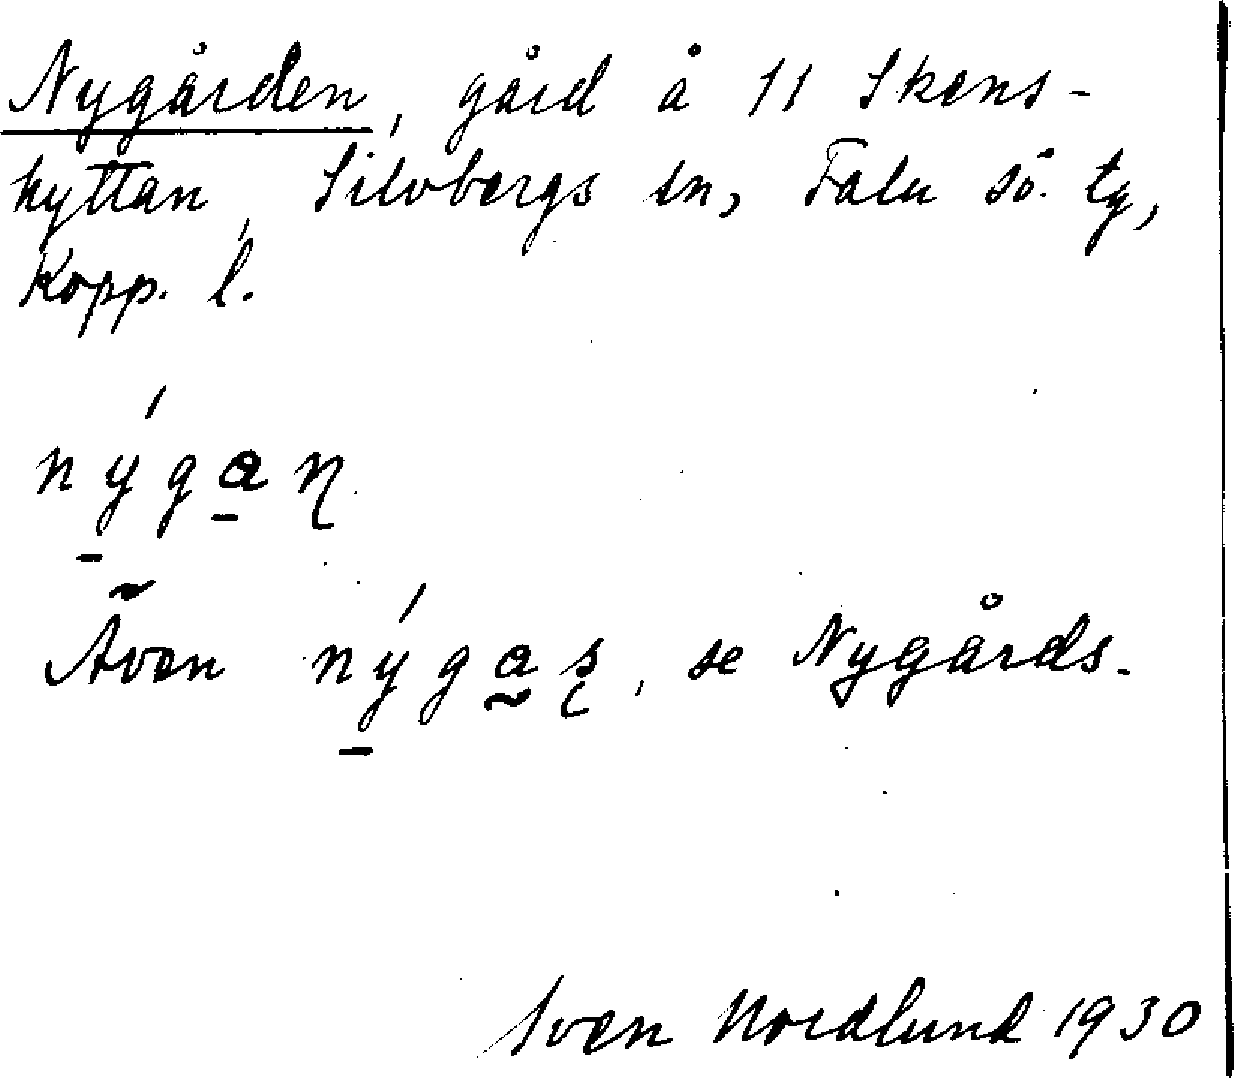 Nygården, gård å 11 Skens-
hyttan, Silvbergs sn, Falu sö. tg,
Kopp. l.
nýga̱ɳ
Även nýga̰ʂ, se Nygårds.
Sven Nordlund 1930